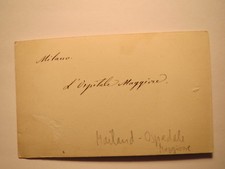 Milano.
L'Ospitale Maggiore.
Mailand - Ospedale
Maggiore